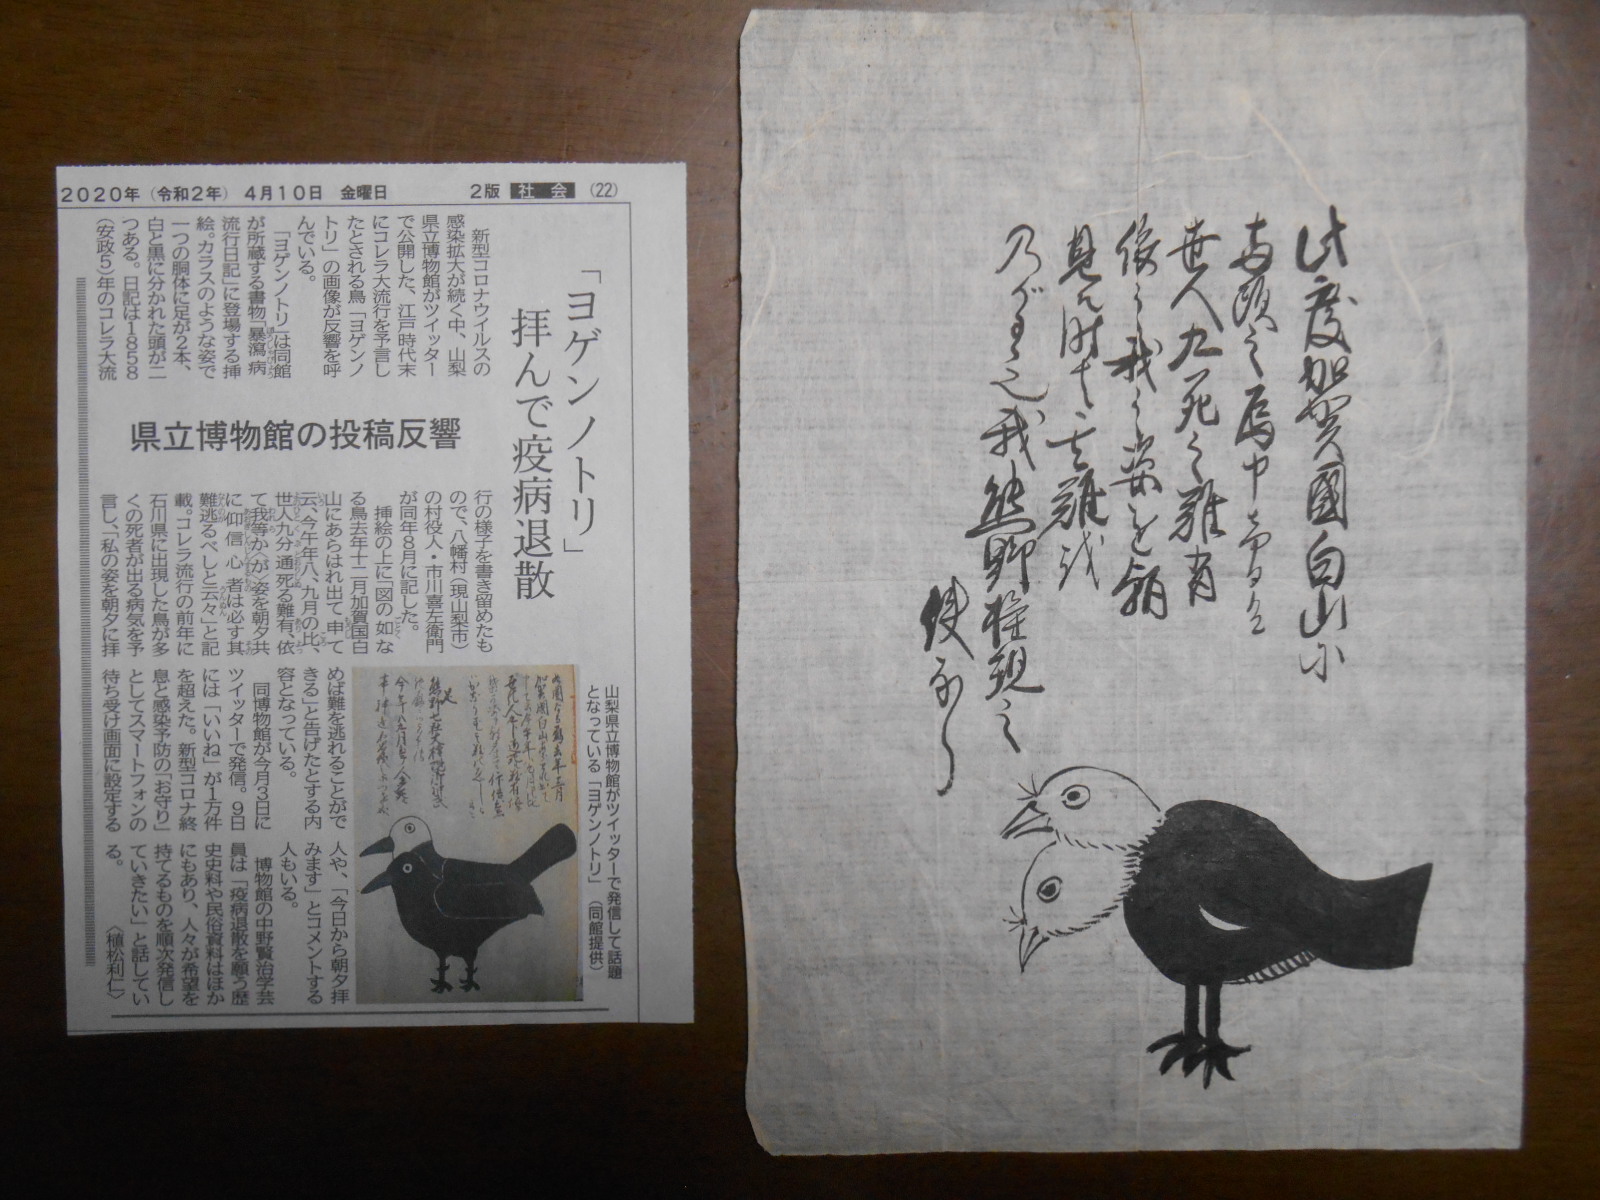 2020年(令和2年) 4月10日 金曜日 2版 社会 (22)
「ヨゲンノトリ」
拝んで疫病退散
県立博物館の投稿反響
新型コロナウイルスの
感染拡大が続く中、山梨
県立博物館がツイッター
で公開した、江戸時代末
にコレラ大流行を予言し
たとされる鳥「ヨゲンノ
トリ」の画像が反響を呼
んでいる。
「ヨゲンノトリ」は同館
が所蔵する書物「暴瀉病
流行日記」に登場する挿
絵。カラスのような姿で
一つの胴体に足が2本、
白と黒に分かれた頭が二
つある。日記は1858
(安政5)年のコレラ大流
行の様子を書き留めたも
ので、八幡村(現山梨市)
の村役人・市川喜左衛門
が同年8月に記した。
挿絵の上に「図の如な
る鳥去年十二月加賀国白
山にあらはれ出て申て
云、今午年八、九月の比、
世人九分通死る難有、依
て我等か〈が〉姿を朝夕共
に仰信心者は必す其
難逃るべしと云々」と記
載。コレラ流行の前年に
石川県に出現した鳥が多
くの死者が出る病気を予
言し、「私の姿を朝夕に拝
めば難を逃れることがで
きる」と告げたとする内
容となっている。
同博物館が今月3日に
ツイッターで発信。9日
には「いいね」が1万件
を超えた。新型コロナ終
息と感染予防の「お守り」
としてスマートフォンの
待ち受け画面に設定する
人や、「今日から朝夕拝
みます」とコメントする
人もいる。
博物館の中野賢治学芸
員は「疫病退散を願う歴
史史料や民俗資料はほか
にもあり、人々が希望を
持てるものを順次発信し
ていきたい」と話してい
る。
〈植松利仁〉
山梨県立博物館がツイッターで発信して話題
となっている「ヨゲンノトリ」(同館提供)
此度加賀國白山に
世人九死之難有
依之我之姿を
見る時は其難
我熊野権現之
使なり